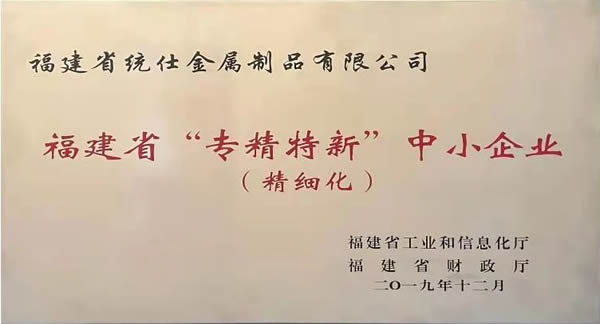 福建省统仕金属制品有限公司
福建省“专精特新”中小企业
（精细化）
福建省工业和信息化厅
福建省财政厅
二〇一九年十二月